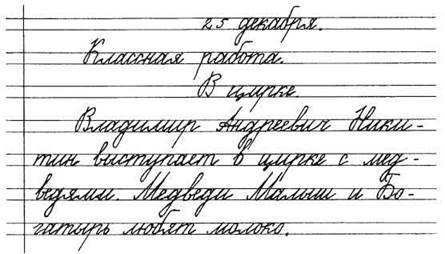 25 декабря.
Классная работа.
В цирке.
Владимир Андреевич Ники-
тин выступает в цирке с мед-
ведями. Медведи Малыш и Бо-
гатырь любят молоко.